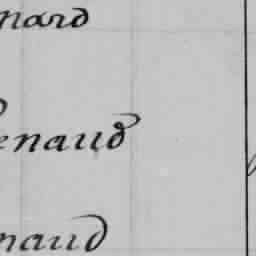 nard
enaud
naud